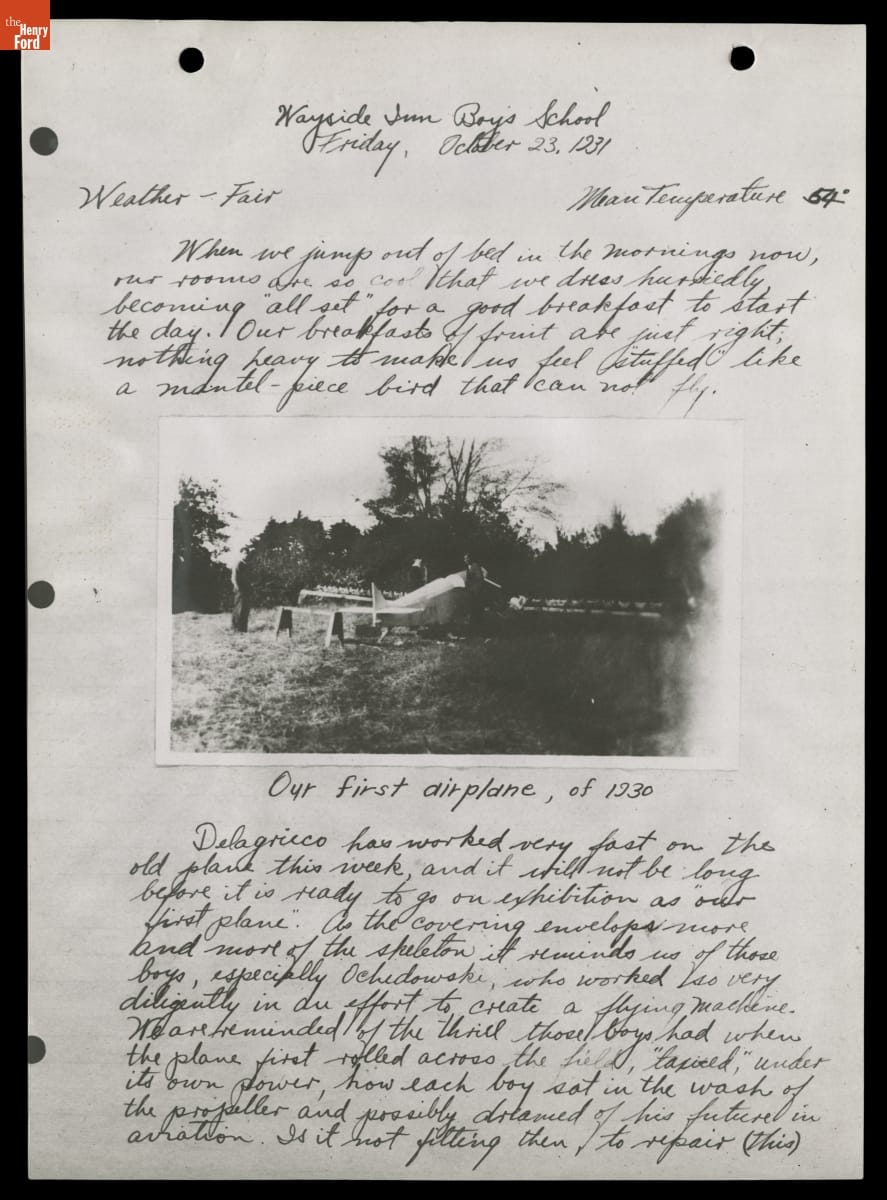 the
Henry
Ford
Wayside Inn Boys School
Friday, October 23, 1931
Weather - Fair Mean Temperature 54°
When we jump out of bed in the mornings now,
our rooms are so cool that we dress hurriedly,
becoming "all set" for a good breakfast to start
the day. Our breakfasts of fruit are just right;
nothing heavy to make us feel "stuffed" like
a mantel-piece bird that can not fly.
Our first airplane, of 1930
Delagrieco has worked very fast on the
old plane this week, and it will not be long
before it is ready to go on exhibition as "our
first plane". As the covering envelops more
and more of the skeleton it reminds us of those
boys, especially Ochedowski, who worked so very
diligently in an effort to create a flying machine.
We are reminded of the thrill those boys had when
the plane first rolled across the field, "taxied," under
its own power, how each boy sat in the wash of
the propeller and possibly dreamed of his future in
aviation. Is it not fitting then, to repair (this)